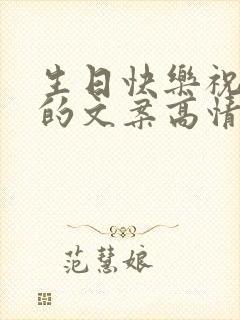 生日快樂祝
的文案高情
范慧娘